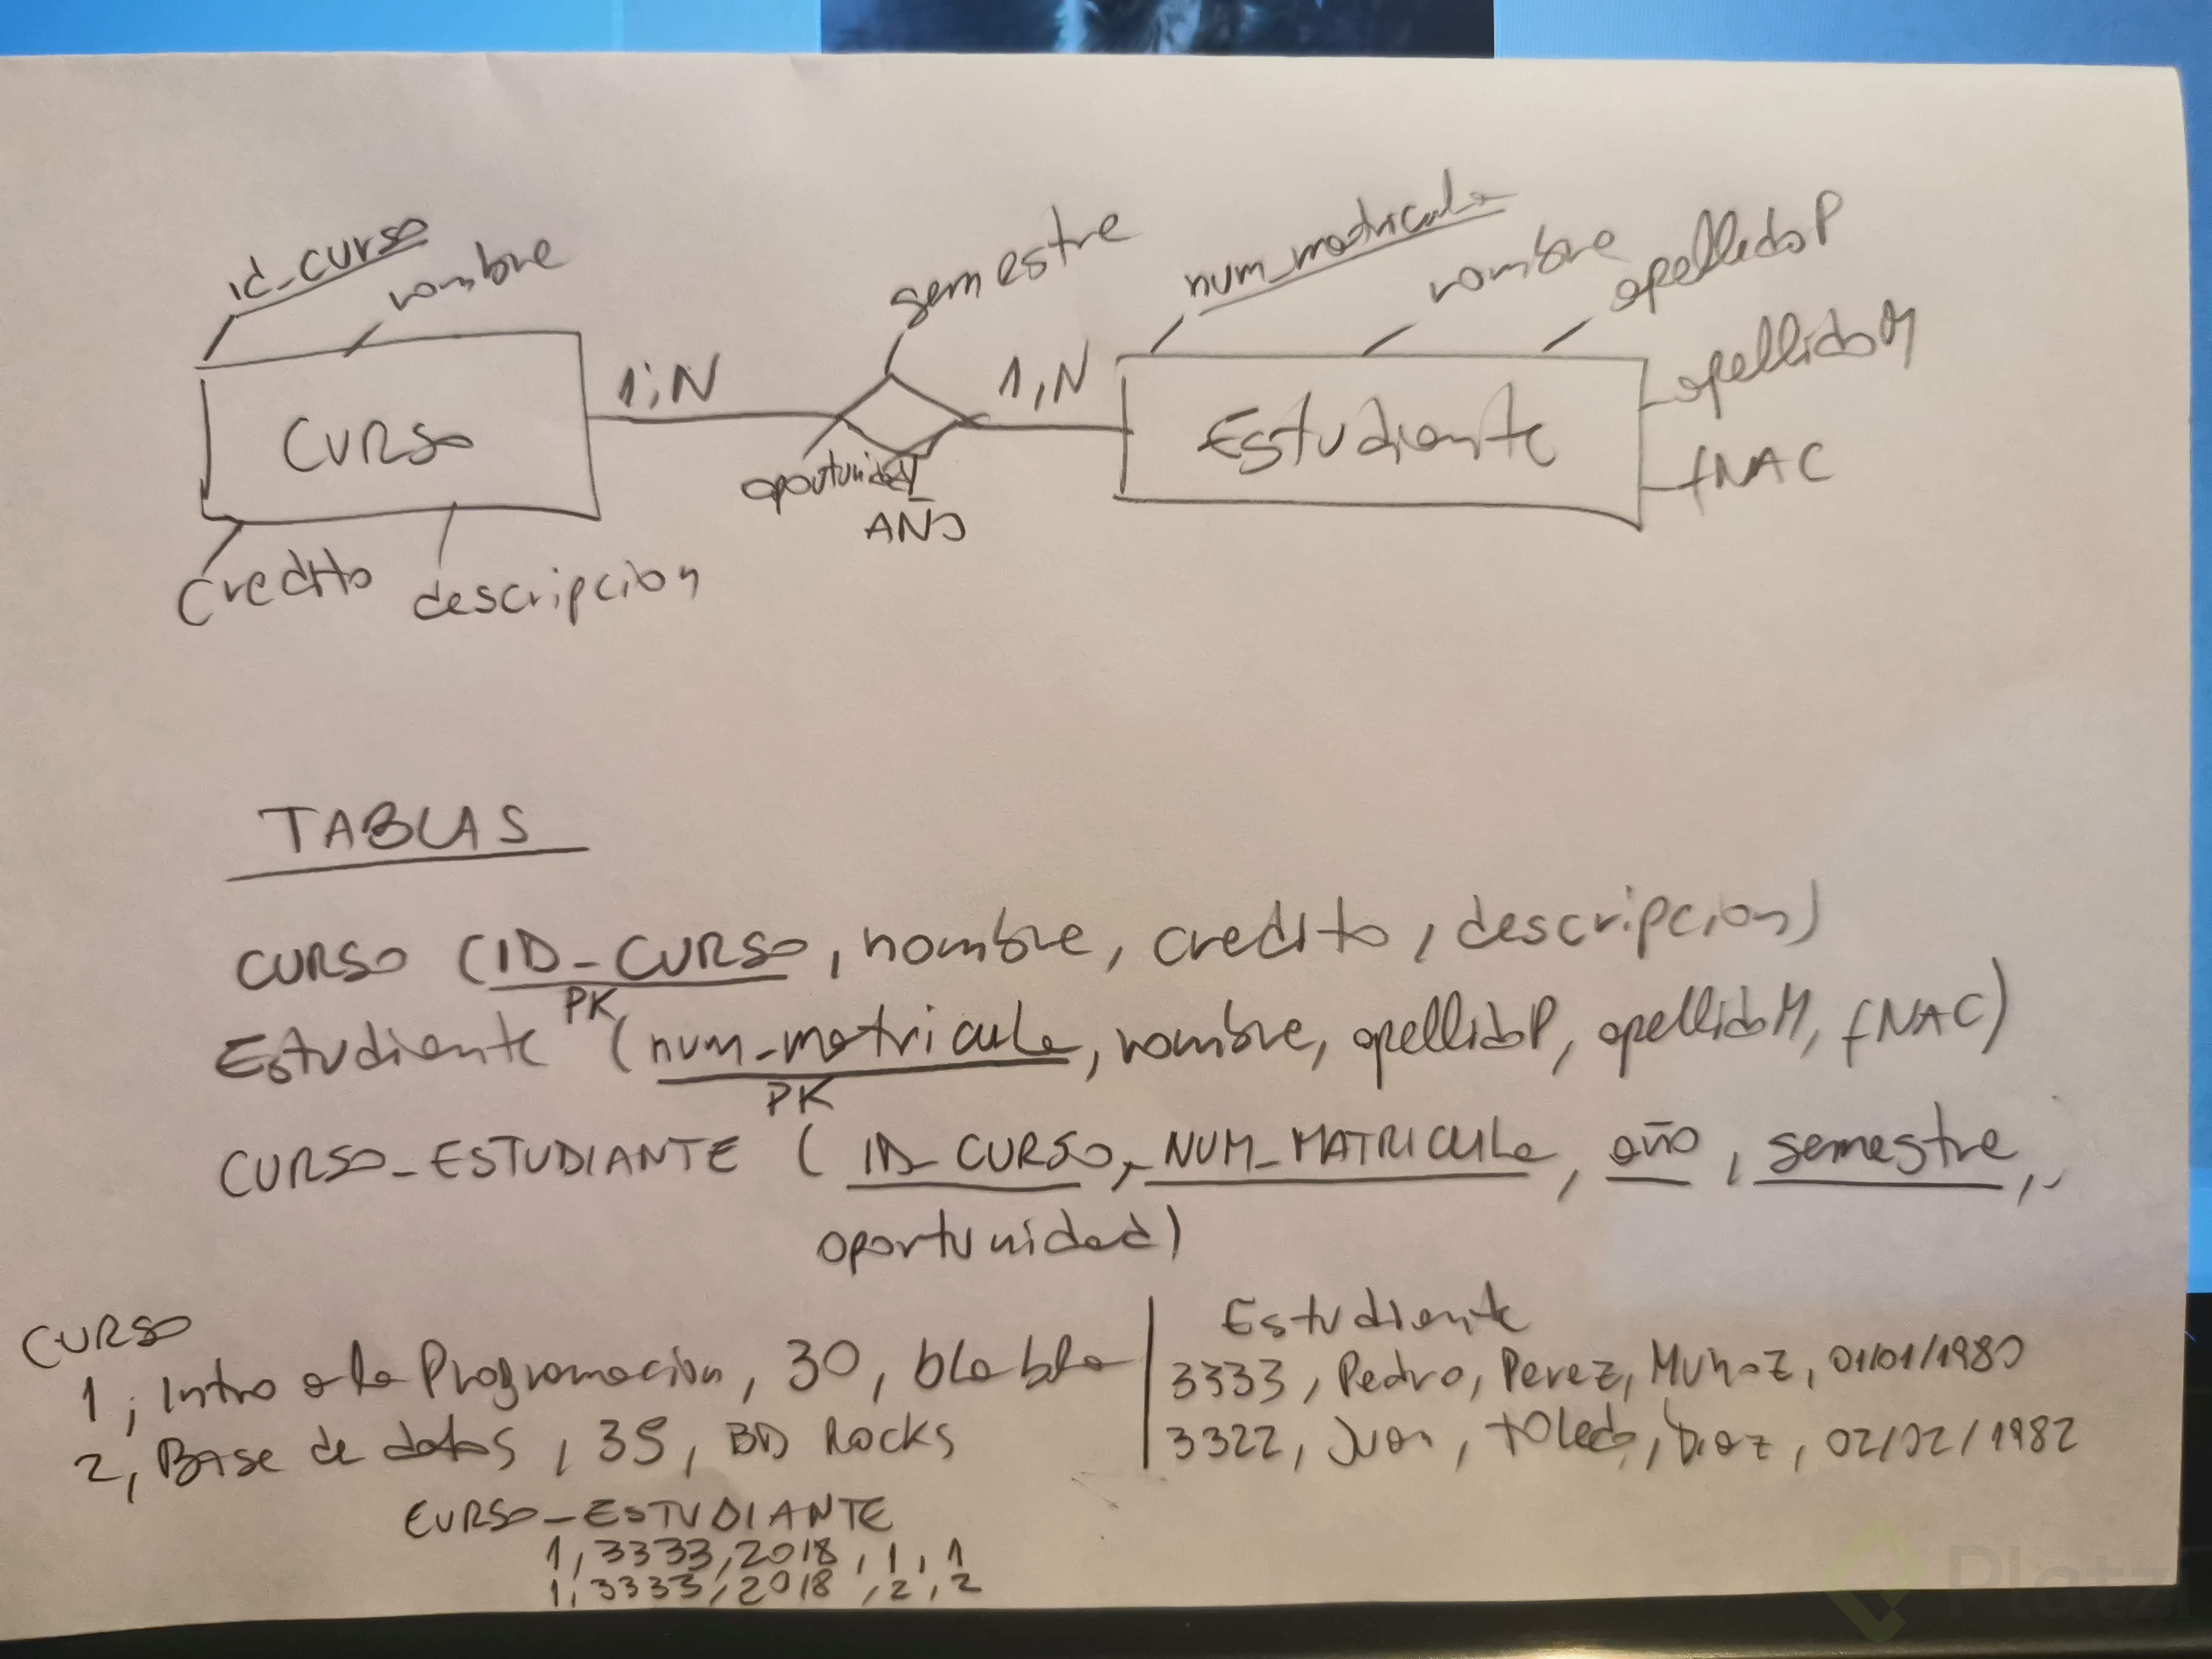 id_curso
nombre
semestre
num_matricula
nombre
apellidoP
apellidoM
fNAC
CURSO
1,N
1,N
Estudiante
oportunidad
AÑO
Credito
descripcion
TABLAS
CURSO (ID_CURSO, nombre, credito, descripcion)
PK
Estudiante (num_matricula, nombre, apellidoP, apellidoM, fNAC)
PK
CURSO_ESTUDIANTE (ID_CURSO, NUM_MATRICULA, año, semestre,
oportunidad)
CURSO
1, Intro a la Programacion, 30, bla bla
2, Base de datos, 35, BD Rocks
Estudiante
3333, Pedro, Perez, Muñoz, 01/01/1980
3322, Juan, tOledo, Diaz, 02/02/1982
CURSO_ESTUDIANTE
1, 3333, 2018, 1, 1
1, 3333, 2018, 2, 2
Platzi